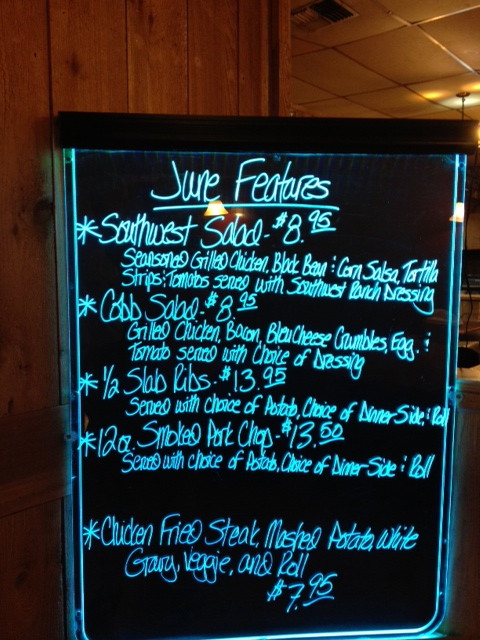 June Features
*Southwest Salad - $8.95
Seasoned Grilled Chicken, Black Bean & Corn Salsa, Tortilla
Strips & Tomatos served with Southwest Ranch Dressing
*Cobb Salad - $8.95
Grilled Chicken, Bacon, Bleu Cheese Crumbles, Egg, &
Tomato served with Choice of Dressing
*1/2 Slab Ribs - $13.95
Served with choice of Potato, Choice of Dinner Side, & Roll
*12 oz. Smoked Pork Chop - $13.50
Served with choice of Potato, Choice of Dinner Side & Roll
*Chicken Fried Steak, Mashed Potato, White
Gravy, Veggie, and Roll
$7.95